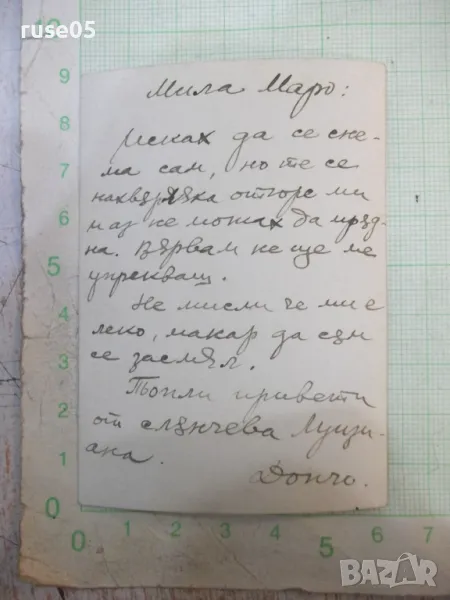 ruse05
Мила Маро:
Исках да се сне-
ма сам, но те се
нахвърляха отгоре ми
и аз не можах да изпъд-
на. Вярвам не ще ме
упрекваш.
Не мисли че ми е
леко, макар да съм
се засмял.
Топли привети
от слънчева Луизи-
ана.
Дончо.
9
8
7
6
5
4
3
2
1
0
0
1
2
3
4
5
6
7
BAZAR